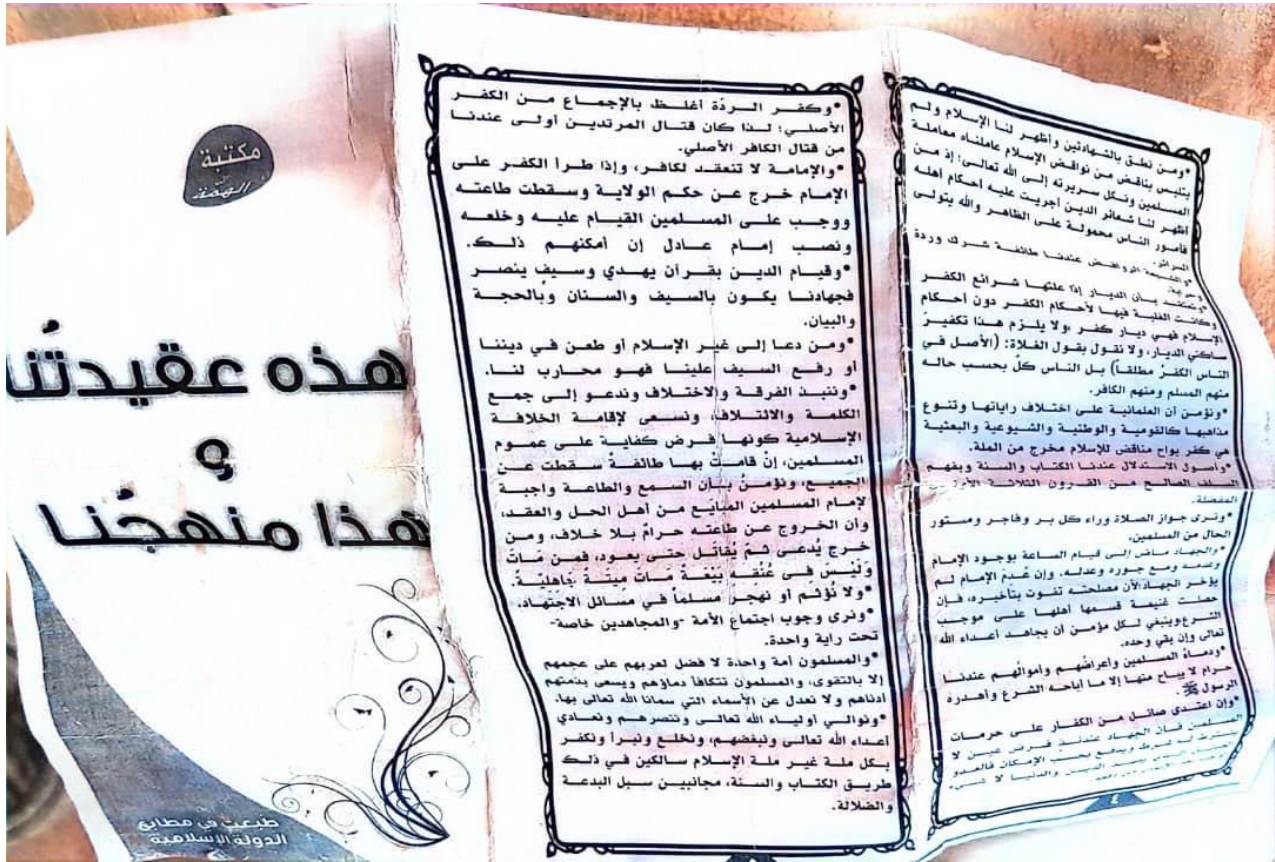 *ومن نطق بالشهادتين وأظهر لنا الإسلام ولم
يتلبس بناقض من نواقض الإسلام عاملناه معاملة
المسلمين ونكل سريرته إلى الله تعالى؛ إذ من
أظهر لنا شعائر الدين أجريت عليه أحكام أهله
فأمور الناس محمولة على الظاهر والله يتولى
السرائر.
*والشيعة الروافض عندنا طائفة شرك وردة
وحرابة.
*ونعتقد بأن الديار إذا علتها شرائع الكفر
وكانت الغلبة فيها لأحكام الكفر دون أحكام
الإسلام فهي ديار كفر، ولا يلزم هذا تكفيرُ
ساكني الديار، ولا نقول بقول الغلاة: (الأصل في
الناس الكفرُ مطلقاً) بل الناس كلٌ بحسب حاله
منهم المسلم ومنهم الكافر.
*ونؤمن أن العلمانية على اختلاف راياتها وتنوع
مذاهبها كالقومية والوطنية والشيوعية والبعثية
هي كفر بواح مناقض للإسلام مخرج من الملة.
*وأصول الاستدلال عندنا الكتاب والسنة وبفهم
السلف الصالح من القرون الثلاثة الأولى
المفضلة.
*ونرى جواز الصلاة وراء كل بر وفاجر ومستور
الحال من المسلمين.
*والجهاد ماض إلى قيام الساعة بوجود الإمام
وعدمه ومع جوره وعدله. وإن عُدم الإمام لم
يؤخر الجهاد؛لأن مصلحته تفوت بتأخيره، فإن
حصلت غنيمة قسمها أهلها على موجب
الشرع،وينبغي لكل مؤمن أن يجاهد أعداء الله
تعالى وإن بقي وحده.
*ودماءُ المسلمين وأعراضُهم وأموالُهم عندنا
حرام لا يباح منها إلا ما أباحه الشرع وأهدره
الرسول ﷺ.
*وإن اعتدى صائل من الكفار على حرمات
المسلمين فإن الجهاد عندئذٍ فرض عين لا
يشترط له شرط ويدفع بحسب الإمكان فالعدو
الدين والدنيا لا شيء
٤
*وكفر الردّة أغلظ بالإجماع من الكفر
الأصلي؛ لذا كان قتال المرتدين أولى عندنا
من قتال الكافر الأصلي.
*والإمامة لا تنعقد لكافر، وإذا طرأ الكفر على
الإمام خرج عن حكم الولاية وسقطت طاعته
ووجب على المسلمين القيام عليه وخلعه
ونصب إمام عادل إن أمكنهم ذلك.
*وقيام الدين بقرآن يهدي وسيف ينصر
فجهادنا يكون بالسيف والسنان وبالحجة
والبيان.
*ومن دعا إلى غير الإسلام أو طعن في ديننا
أو رفع السيف علينا فهو محارب لنا.
*وننبذ الفرقة والاختلاف وندعو إلى جمع
الكلمة والائتلاف، ونسعى لإقامة الخلافة
الإسلامية كونها فرض كفاية على عموم
المسلمين، إنْ قامتْ بها طائفةٌ سقطت عن
الجميع، ونؤمنُ بأن السمع والطاعة واجبة
لإمام المسلمين المبايَع من أهل الحل والعقد،
وأن الخروج عن طاعته حرامٌ بلا خلاف، ومن
خرج يُدعى ثمّ يُقاتل حتى يعود، فمن مَاتَ
وَلَيْسَ فى عُنُقه بَيْعَةٌ مَاتَ مِيتَةً جَاهِلِيَّةً.
*ولا نُؤثم أو نهجر مسلماً في مسائل الاجتهاد.
*ونرى وجوب اجتماع الأمة -والمجاهدين خاصة-
تحت راية واحدة.
*والمسلمون أمة واحدة لا فضل لعربهم على عجمهم
إلا بالتقوى، والمسلمون تتكافأ دماؤهم ويسعى بذمتهم
أدناهم ولا نعدل عن الأسماء التي سمانا الله تعالى بها.
*ونوالي أولياء الله تعالى وننصرهم ونعادي
أعداء الله تعالى ونبغضهم، ونخلع ونبرأ ونكفر
بكل ملة غير ملة الإسلام سالكين في ذلك
طريق الكتاب والسنة، مجانبين سبل البدعة
والضلالة.
مكتبة
الهمة
هذه عقيدتُنا
و
هذا منهجُنا
طبعت في مطابع
الدولة الإسلامية